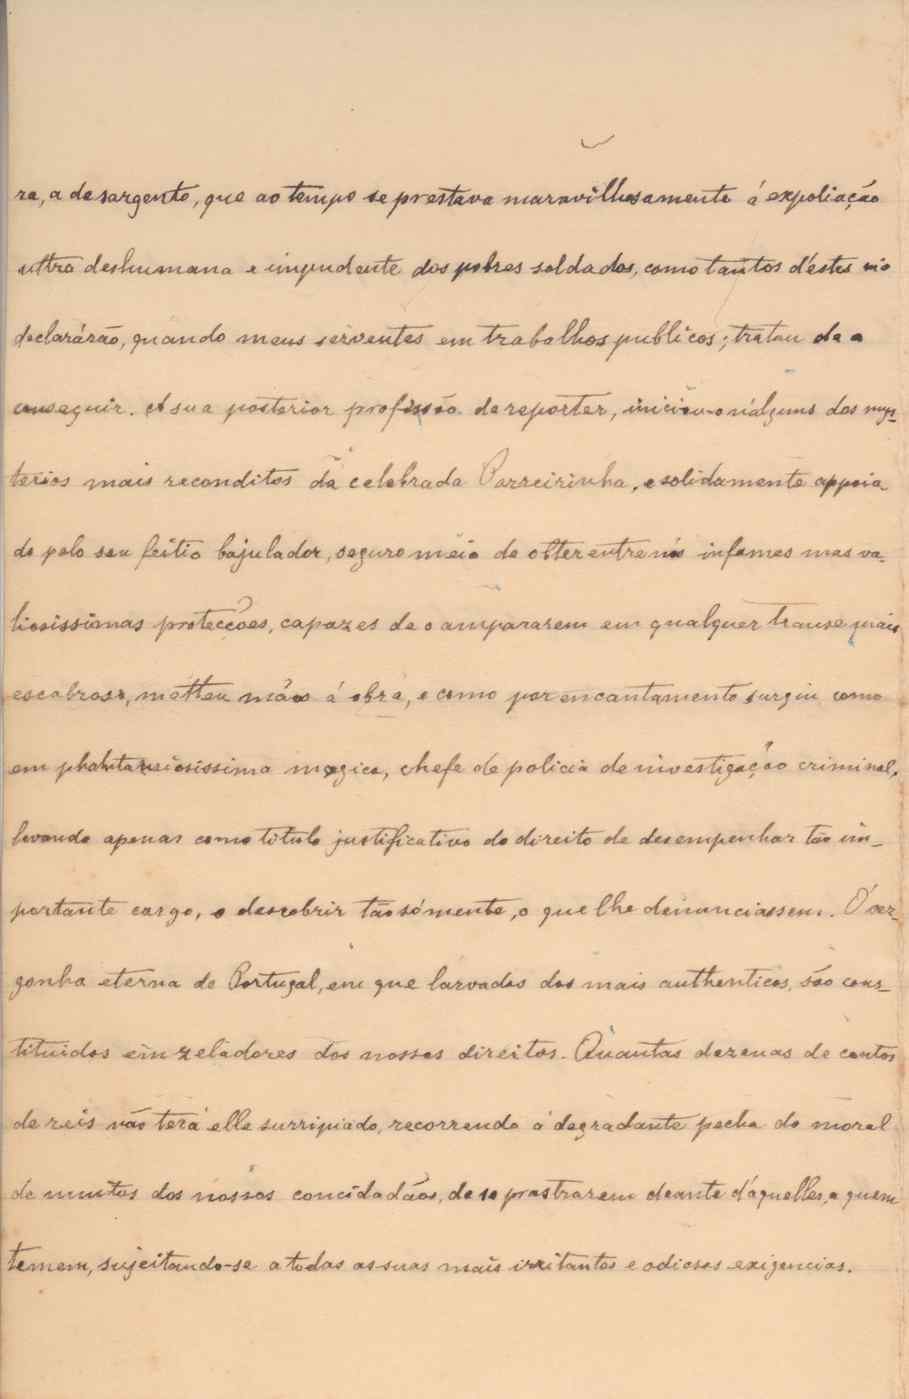 ra, a de sargento, que ao tempo se prestava maravilhosamente á expoliação
ultra deshumana e impudente dos pobres soldados, como tantos d'estes m'o
declarárão, quando meus serventes em trabalhos publicos; tratou de a
conseguir. A sua posterior profissão de reporter, iniciou-o n'alguns dos mys-
terios mais reconditos da celebrada Parreirinha, e solidamente appoia-
do pelo seu feitio bajulador, seguro meio de obter entre nós infames mas va-
liosissimas protecções, capazes de o ampararem em qualquer transe mais
escabroso, metteu mãos á obra, e como por encantamento surgiu como
em phantasiosissima magica, chefe de policia de investigação criminal,
levando apenas como titulo justificativo do direito de desempenhar tão im-
portante cargo, o descobrir tão sómente, o que lhe denunciassem. Ó ver-
gonha eterna de Portugal, em que larvados dos mais authenticos, são cons-
tituidos em zeladores dos nossos direitos. Quantas dezenas de contos
de reis não terá elle surripiado, recorrendo á degradante pecha do moral
de muitos dos nossos concidadãos, de se prostrarem deante d'aquelles, a quem
temem, sujeitando-se a todas as suas mais irritantes e odiosas exigencias.